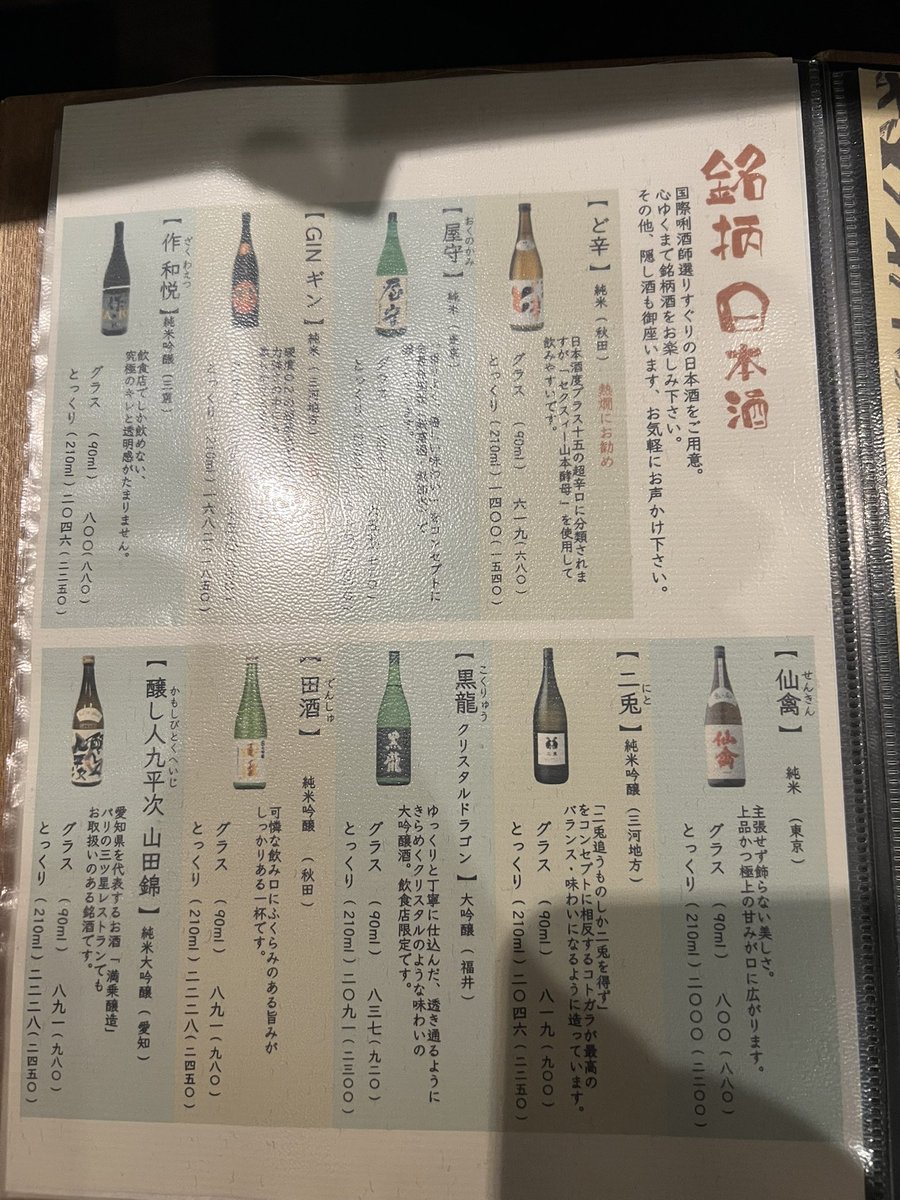 銘柄 日本酒
国際唎酒師選りすぐりの日本酒をご用意。
心ゆくまで銘柄酒をお楽しみ下さい。
その他、隠し酒も御座います、お気軽にお声かけ下さい。
【ど辛】 純米（秋田） 熱燗にお勧め
日本酒度プラス十五の超辛口に分類されま
すが「セクスィー山本酵母」を使用して
飲みやすいです。
グラス （90ml） 六一九（六八〇）
とっくり（210ml）一四〇〇（一五四〇）
おくのかみ
【屋守】 純米
【GIN ギン】 純米
とっくり（210ml）一六八
ざく わえつ
【作 和悦】純米吟醸（三重）
飲食店でしか飲めない、
究極のキレと透明感がたまりません。
グラス （90ml） 八〇〇（八八〇）
とっくり（210ml）二〇四六（二二五〇）
せんきん
【仙禽】 純米 （東京）
主張せず飾らない美しさ。
上品かつ極上の甘みが口に広がります。
グラス （90ml） 八〇〇（八八〇）
とっくり（210ml）二〇〇〇（二二〇〇）
にと
【二兎】 純米吟醸（三河地方）
「二兎追うものしか二兎を得ず」
をコンセプトに相反するコトガラが最高の
バランス・味わいになるように造っています。
グラス （90ml） 八一九（九〇〇）
とっくり（210ml）二〇四六（二二五〇）
こくりゅう
【黒龍 クリスタルドラゴン】 大吟醸（福井）
ゆっくりと丁寧に仕込んだ、透き通るように
きらめくクリスタルのような味わいの
大吟醸酒。飲食店限定です。
グラス （90ml） 八三七（九二〇）
とっくり（210ml）二〇九一（二三〇〇）
でんしゅ
【田酒】 純米吟醸 （秋田）
可憐な飲み口にふくらみのある旨みが
しっかりある一杯です。
グラス （90ml） 八九一（九八〇）
とっくり（210ml）二二二八（二四五〇）
かもしびとくへいじ
【醸し人九平次 山田錦】純米大吟醸（愛知）
愛知県を代表するお酒「萬乗醸造」
パリの三ツ星レストランでも
お取扱いのある銘酒です。
グラス （90ml） 八九一（九八〇）
とっくり（210ml）二二二八（二四五〇）